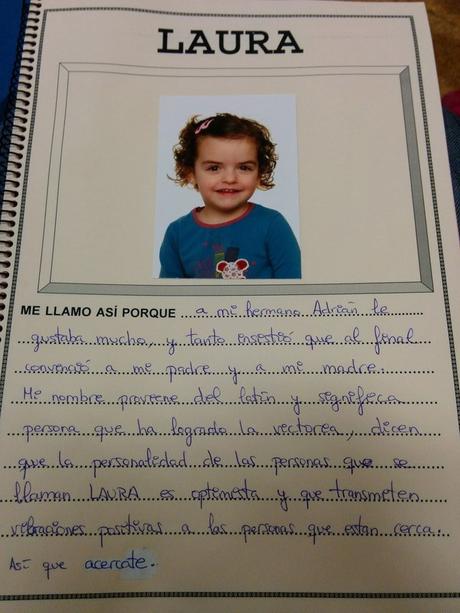 LAURA
ME LLAMO ASÍ PORQUE a mi hermano Adrián le
gustaba mucho, y tanto insistió que al final
convenció a mi padre y a mi madre.
Mi nombre proviene del latín y significa
persona que ha logrado la victoria, dicen
que la personalidad de las personas que se
llaman LAURA es optimista y que transmiten
vibraciones positivas a las personas que estan cerca.
Así que acercate.